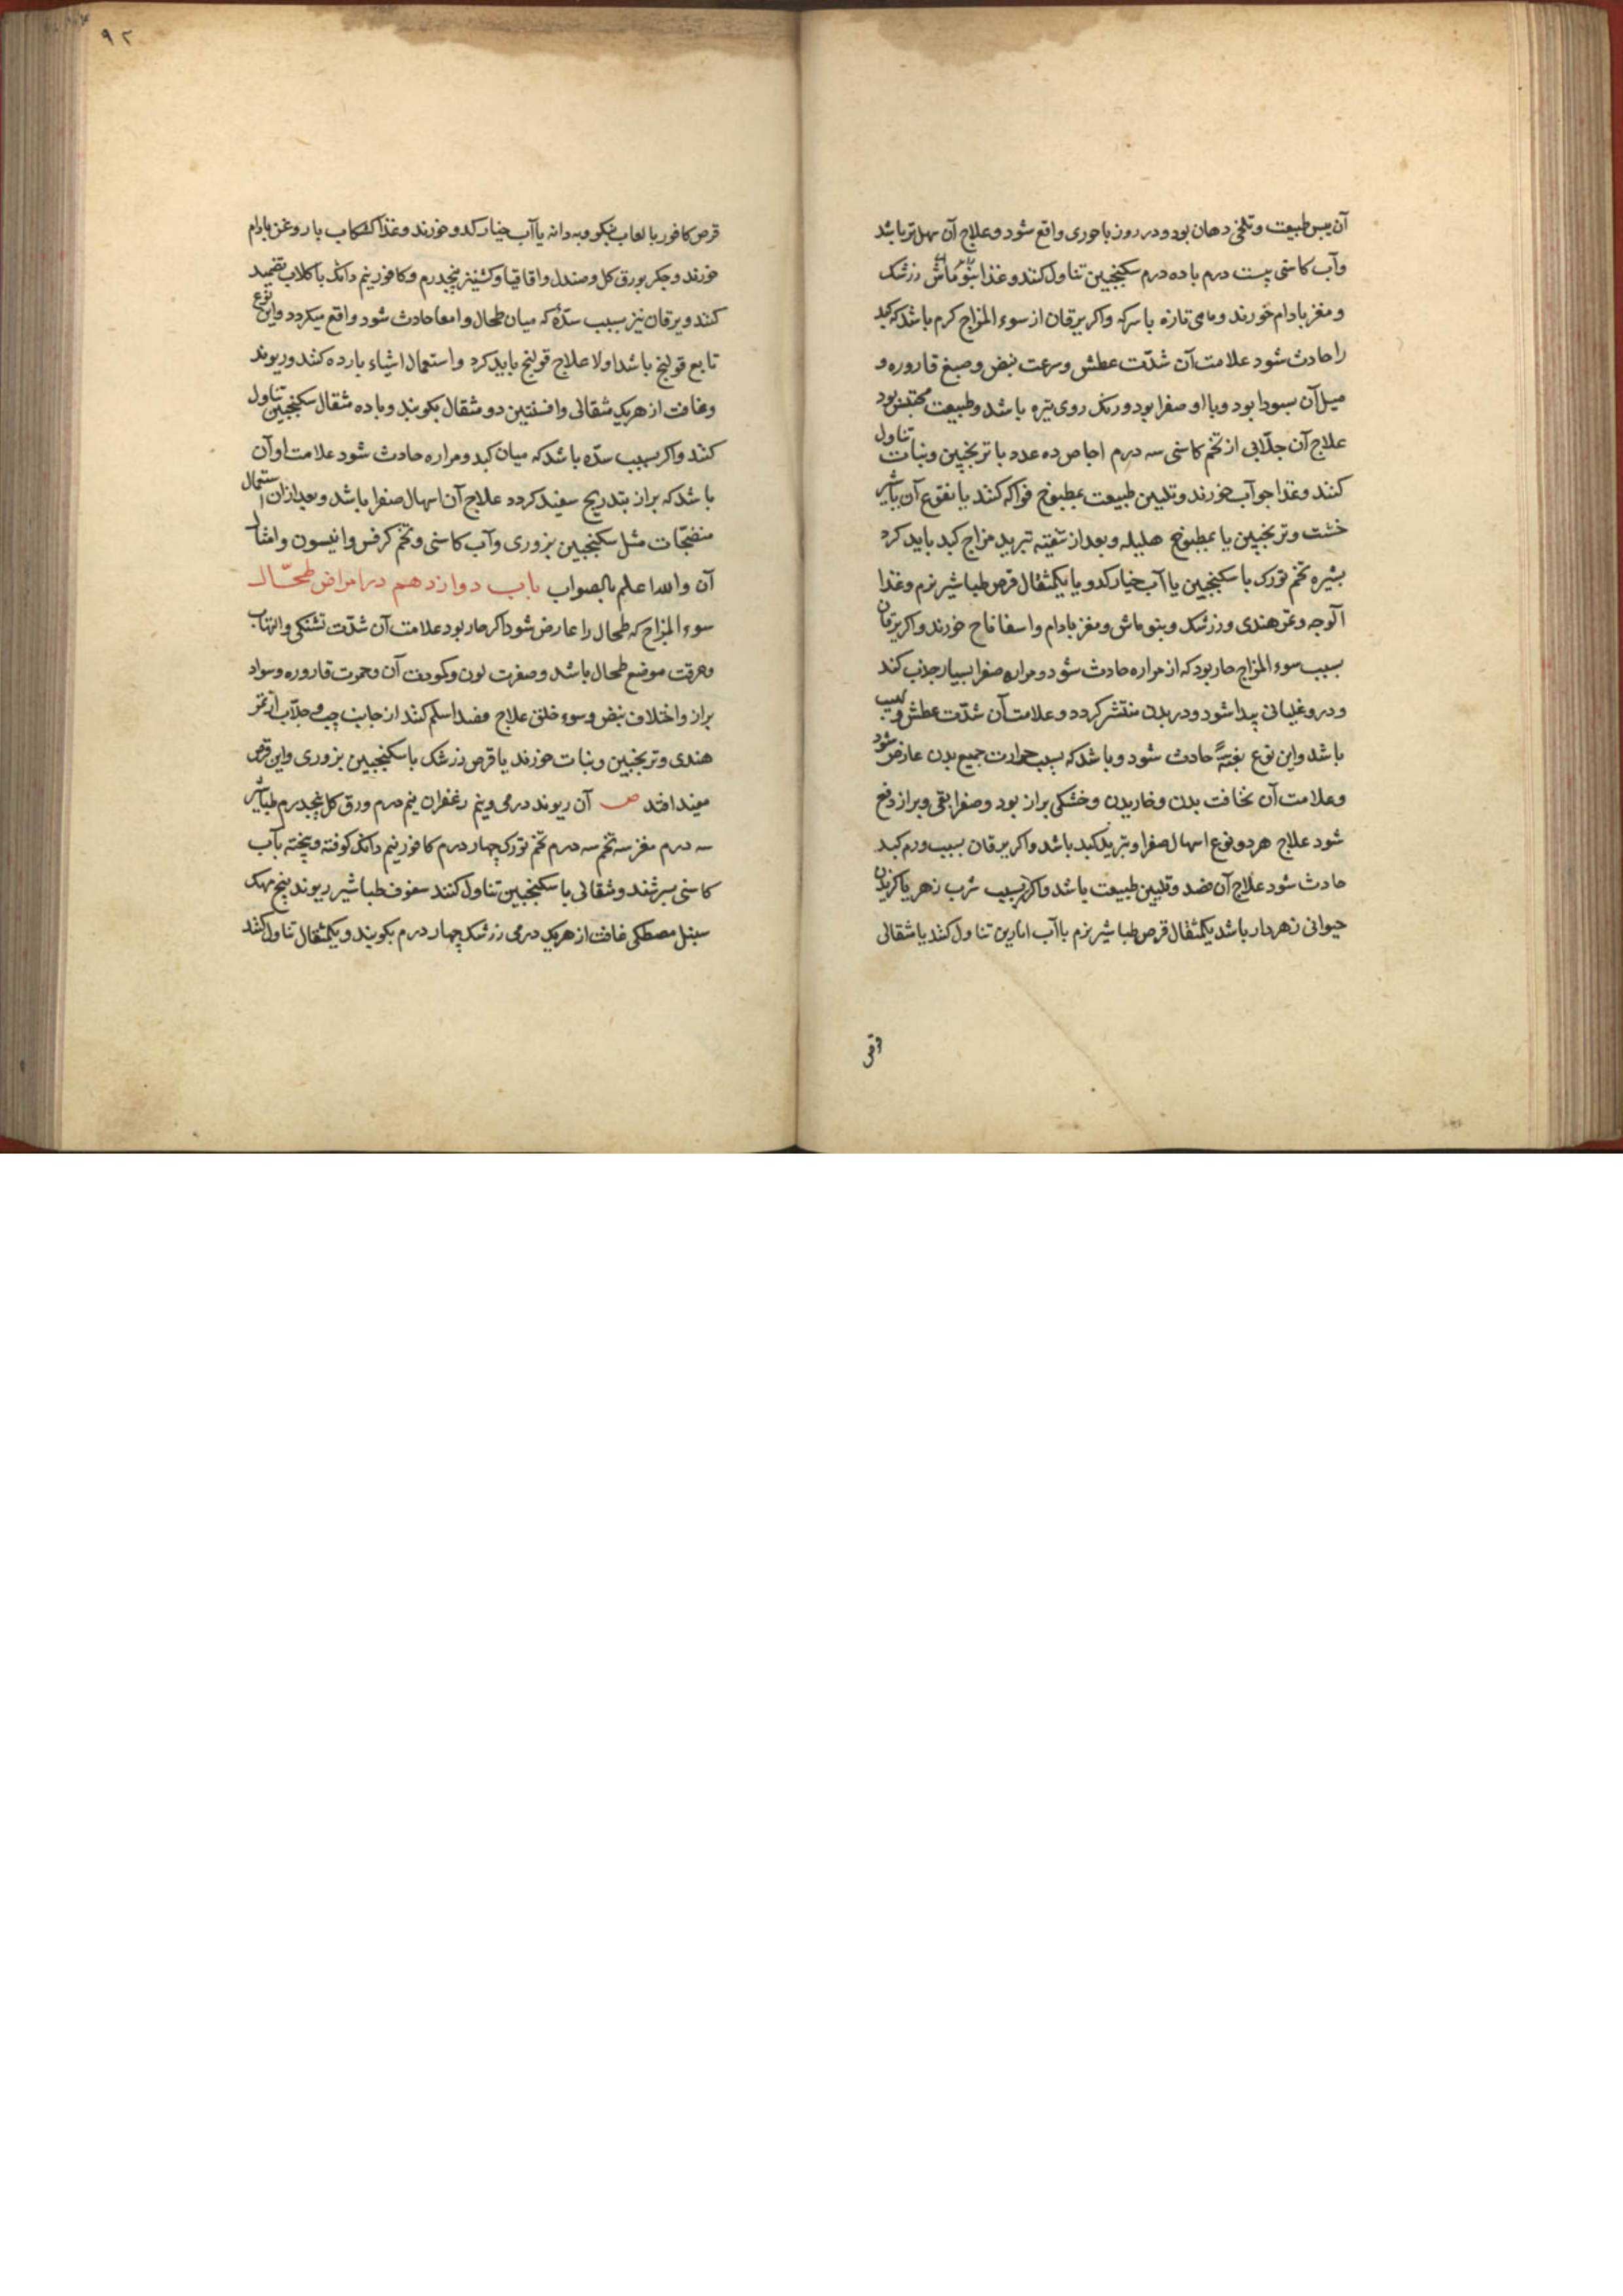 آن یبس طبیعت و تلخی دهان بود و در روز باحوری واقع شود و علاج آن سهل‌تر باشد
وآب کاسنی بیست درم با ده درم سکنجبین تناول کنند و غذا بنوماش زرشک
و مغز بادام خورند و ماهی تازه با سرکه واکر یرقان از سوء المزاج کرم باشد که کبد
را حادث شود علامت آن شدّت عطش و سرعت نبض و صبغ قاروره و
میل آن بسودا بود و یا او صفرا بود و رنک روی تیره باشد و طبیعت محتبس بود
علاج آن جلّابی از تخم کاسنی سه درم اجاص ده عدد با ترنجبین و نبات تناول
کنند و غذا جوآب خورند و تلیین طبیعت بمطبوخ فواکه کنند یا بنقوع آن باشیر
خشت و ترنجبین یا بمطبوخ هلیله و بعد از تنقیه تبرید مزاج کبد باید کرد
بشیره تخم تورک با سکنجبین یا آب خیار کدو یا یکمثقال قرص طباشیر نرم و غذا
آلوجه و تمر هندی و زرشک و بنوماش و مغز بادام واسفاناخ خورند واکر یرقان
بسبب سوء المزاج حار بود که از مراره حادث شود و مراره صفرا بسیار جذب کند
و درو غلیانی پیدا شود و در بدن منتشر کردد و علامت آن شدّت عطش و لهیب
باشد و این نوع بغتةً حادث شود و باشد که بسبب حرارت جمیع بدن عارض شود
وعلامت آن نخافت بدن و خاریدن و خشکی براز بود و صفرا بقی و براز دفع
شود علاج هر دو نوع اسهال صفرا و تبرید کبد باشد واکر یرقان بسبب ورم کبد
حادث شود علاج آن فصد و تلیین طبیعت باشد واکر بسبب شرب زهر یا کزیدن
حیوانی زهردار باشد یکمثقال قرص طباشیر نرم با آب انارین تناول کنند یا مثقالی
قرص
۹۲
قرص کافور با لعاب بنکو و به دانه یا آب خیار کدو خورند و غذا کشکاب با روغن بادام
خورند و جکر بورق کل و صندل واقاقیا و کشنیز پنجدرم و کافور نیم دانک با کلاب تضمید
کنند و یرقان نیز بسبب سدّهٔ که میان طحال وامعا حادث شود واقع میکردد واین نوع
تابع قولنج باشد اولا علاج قولنج باید کرد واستعمال اشیاء بارده کنند و ریوند
وغافت از هریک مثقالی وافسنتین دو مثقال بکوبند و با ده مثقال سکنجبین تناول
کنند واکر بسبب سدّه باشد که میان کبد و مراره حادث شود علامت او آن
باشد که براز بتدریج سفید کردد علاج آن اسهال صفرا باشد و بعد از ان استعمال
منضجّات مثل سکنجبین بزوری وآب کاسنی و تخم کرفس وانیسون وامثال
آن والله اعلم بالصواب باب دوازدهم در امراض طحّال
سوء المزاج که طحال را عارض شود اکر حار بود علامت آن شدّت تشنکی والتهاب
وحرقت موضع طحال باشد و صفرت لون و کمودت آن و حمرت قاروره و سواد
براز واختلاف نبض و سوء خلق علاج فصد اسلم کنند از جانب چپ و جلّاب از تمر
هندی و ترنجبین و نبات خورند یا قرص زرشک با سکنجبین بزوری واین قرص
مفید افتد ص آن ریوند درمی و نیم زعفران نیم درم ورق کل پنجدرم طباشیر
سه درم مغز سه تخم سه درم تخم تورک چهار درم کافور نیم دانک کوفته و بیخته بآب
کاسنی بسرشند و مثقالی با سکنجبین تناول کنند سفوف طباشیر ریوند بیخ مهک
سنبل مصطکی غافت از هریک درمی زرشک چهار درم بکوبند و یکمثقال تناول کنند